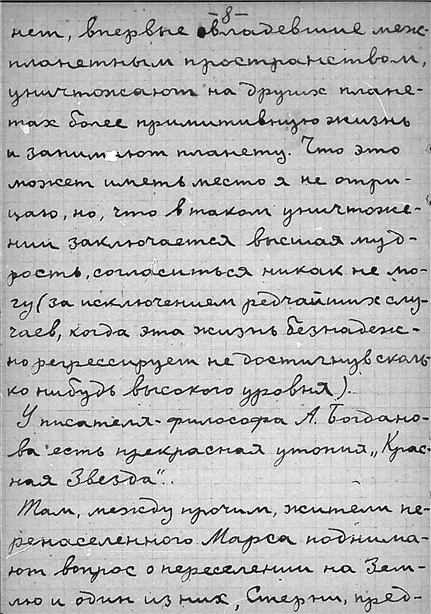 -8-
нет, впервые овладевшие меж-
планетным пространством,
уничтожают на других плане-
тах более примитивную жизнь
и занимают планету. Что это
может иметь место я не отри-
цаю, но, что в таком уничтоже-
нии заключается высшая муд-
рость, согласиться никак не мо-
гу (за исключением редчайших слу-
чаев, когда эта жизнь безнадеж-
но регрессирует не достигнув сколь-
ко нибудь высокого уровня).
У писателя-философа А. Богдано-
ва есть прекрасная утопия „Крас-
ная Звезда"..
Там, между прочим, жители пе-
ренаселенного Марса поднима-
ют вопрос о переселении на Зем-
лю и один из них, Стерни, пред-